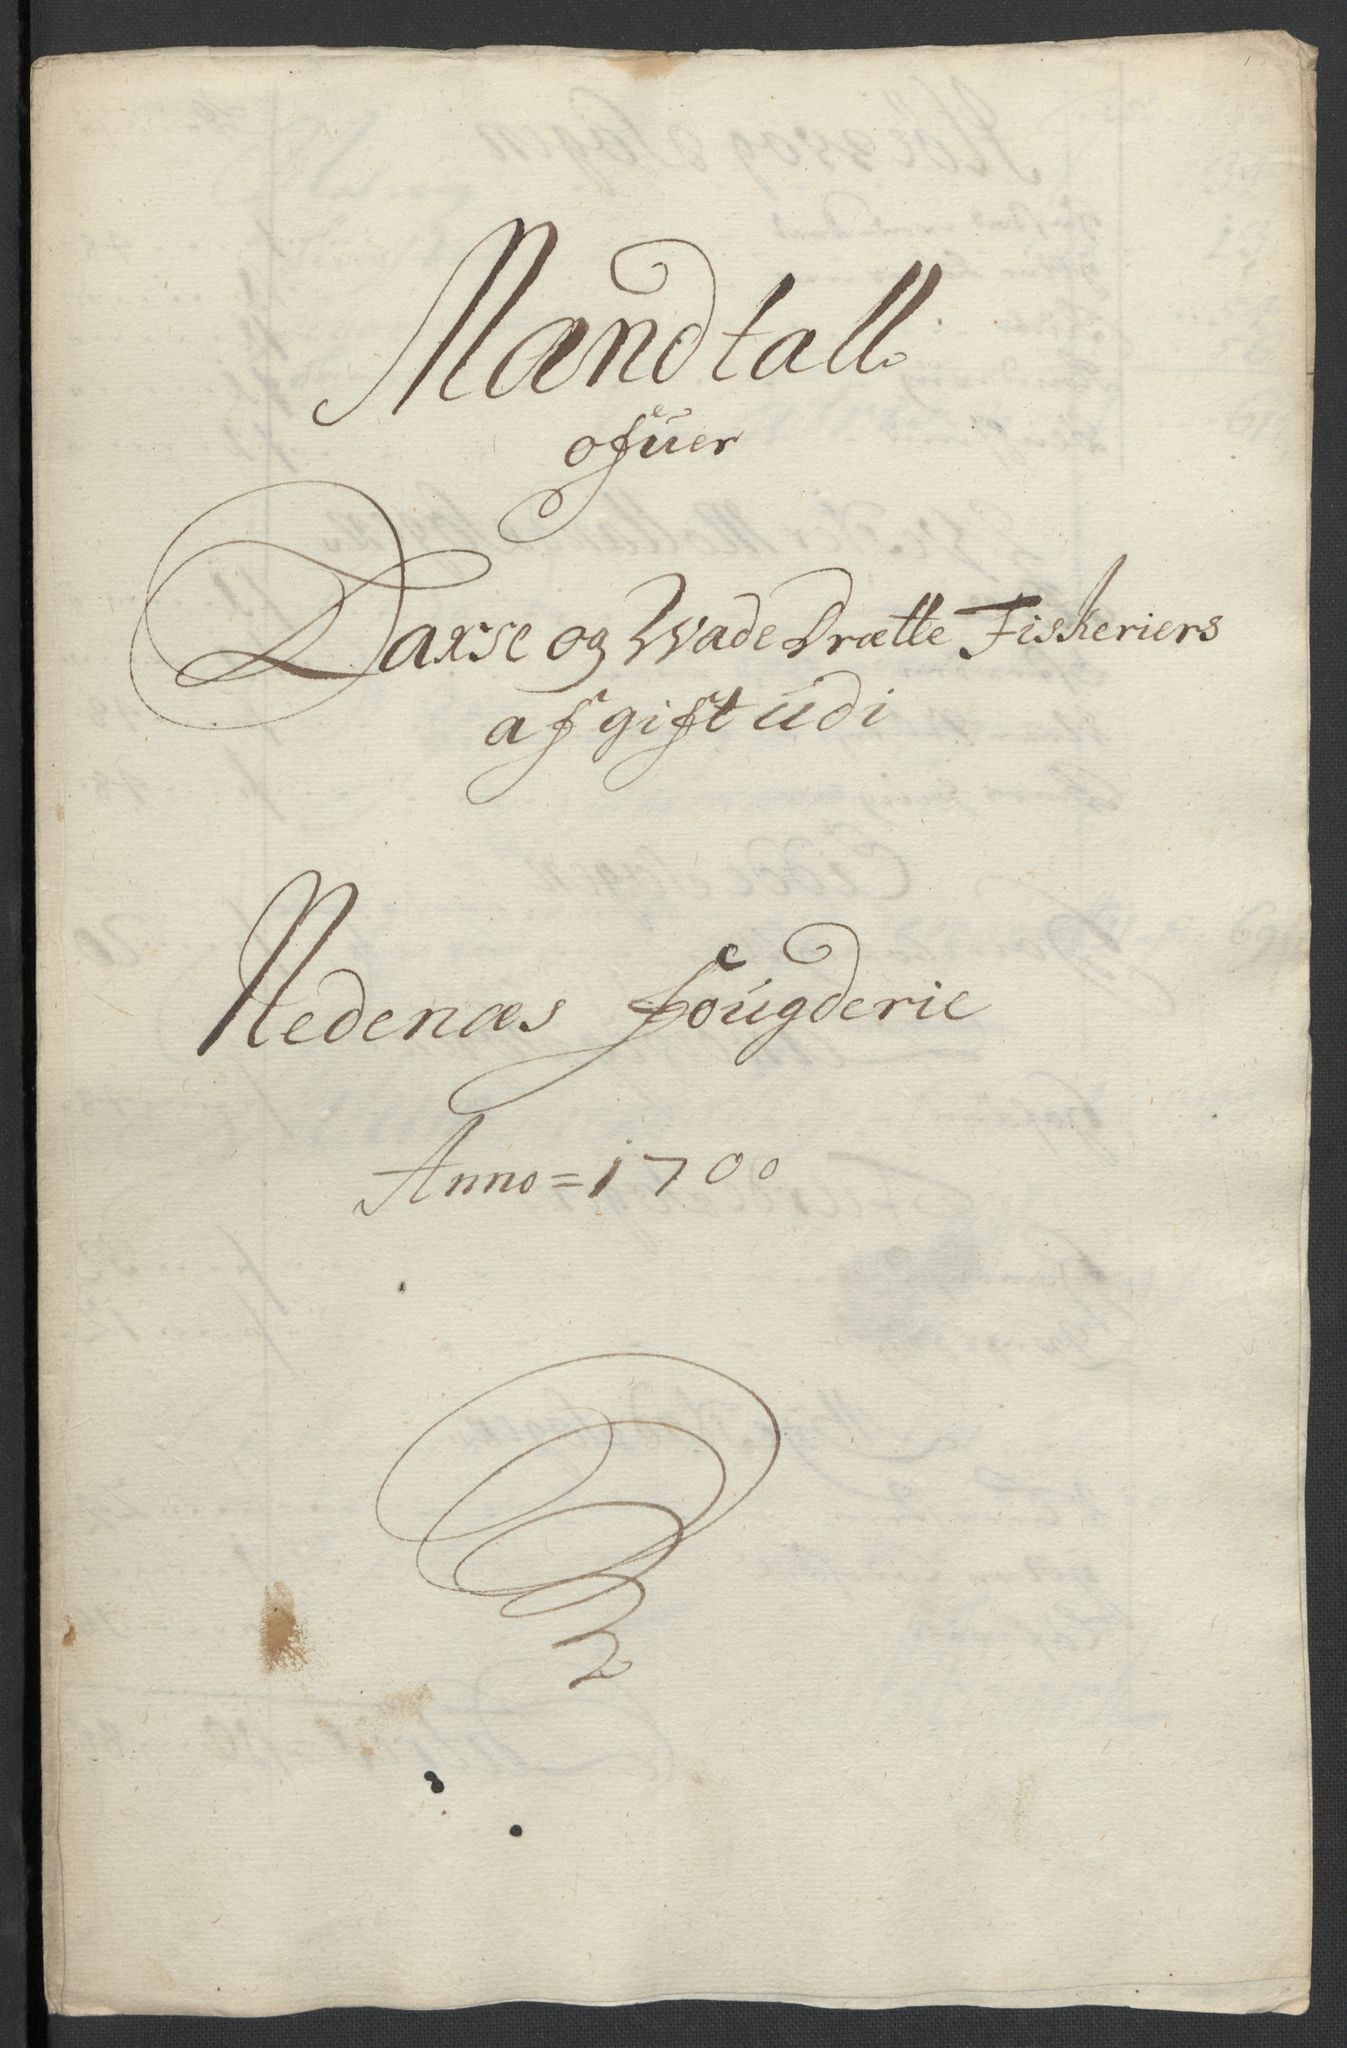 Mandtall
ofuer
Laxse og Wade Drætte Fiskeriers
afgift udi
Nedenæs fougderie
Anno = 1700